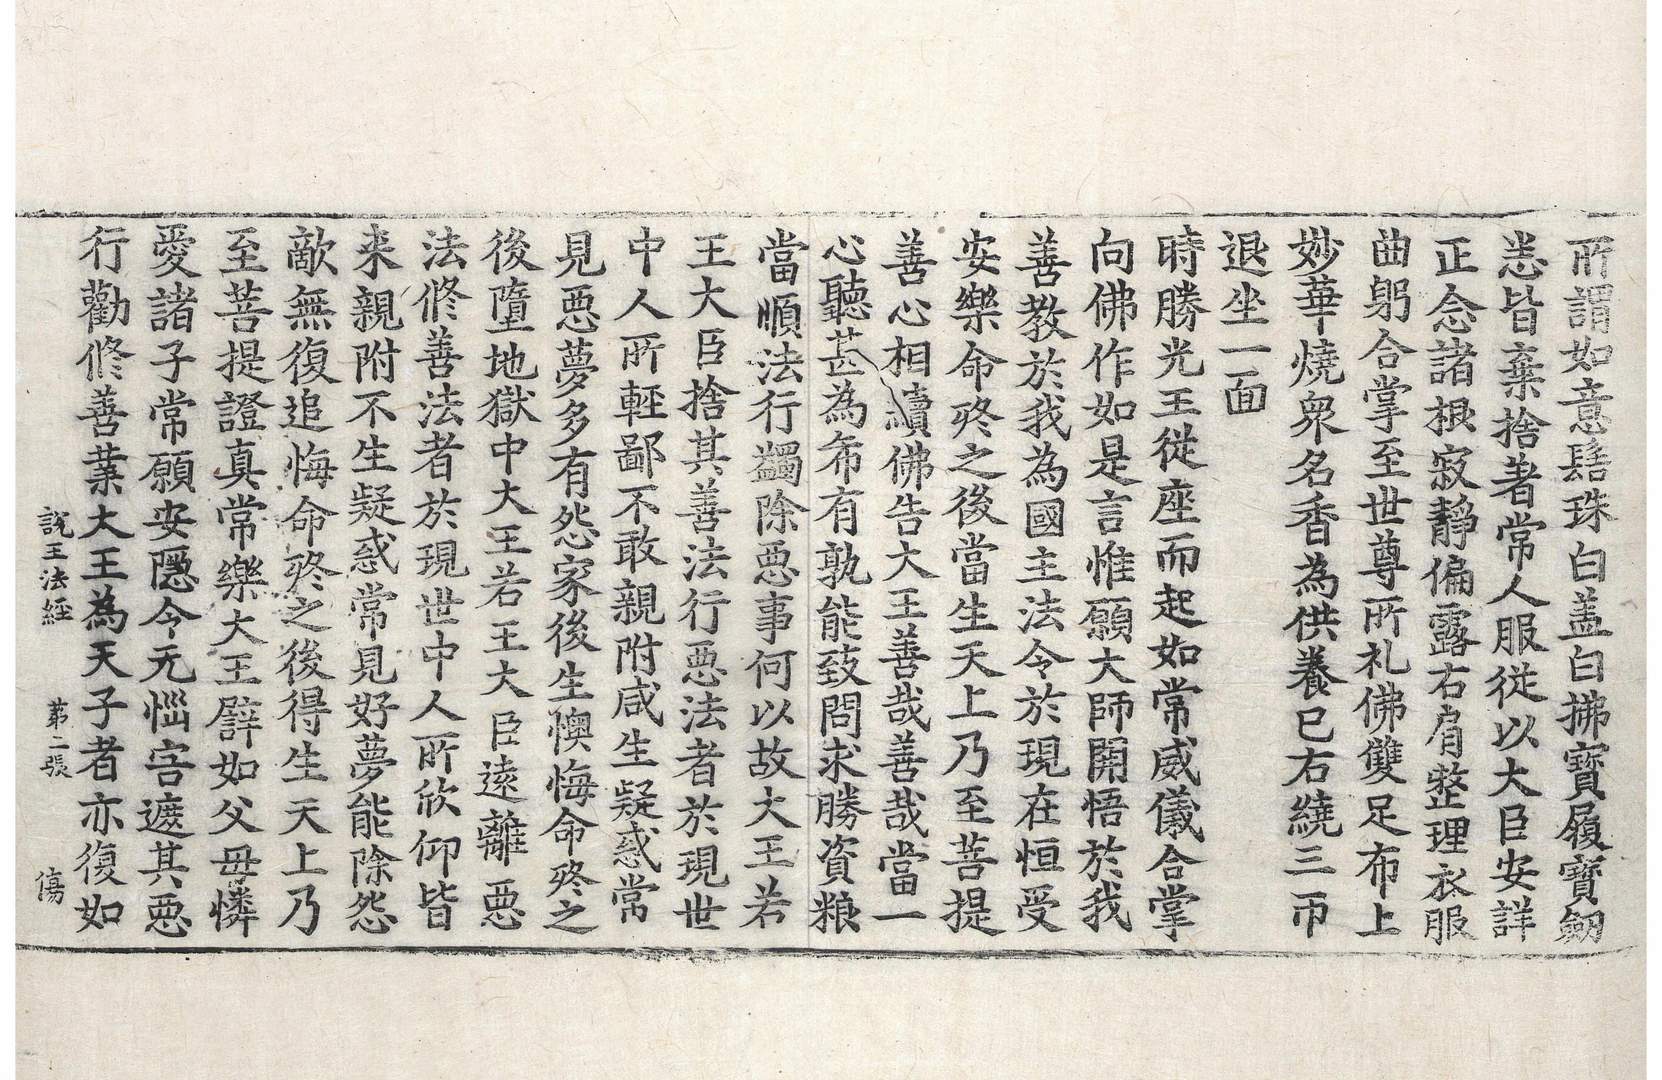 所謂如意髻珠白盖白拂寶履寶劒
恙皆棄捨著常人服從以大臣安詳
正念諸根寂靜偏露右肩整理衣服
曲躬合掌至世尊所礼佛雙足布上
妙華燒衆名香為供養已右繞三帀
退坐一面
時勝光王從座而起如常威儀合掌
向佛作如是言惟願大師開悟於我
善教於我為國主法令於現在恒受
安樂命終之後當生天上乃至菩提
善心相續佛告大王善哉善哉當一
心聽甚為希有孰能致問求勝資粮
當順法行蠲除惡事何以故大王若
王大臣捨其善法行惡法者於現世
中人所輕鄙不敢親附咸生疑惑常
見惡夢多有怨家後生懊悔命終之
後墮地獄中大王若王大臣遠離惡
法修善法者於現世中人所欣仰皆
来親附不生疑惑常見好夢能除怨
敵無復追悔命終之後得生天上乃
至菩提證真常樂大王譬如父母憐
愛諸子常願安隱令无惱害遮其惡
行勸修善業大王為天子者亦復如
說王法經　第二張　傷